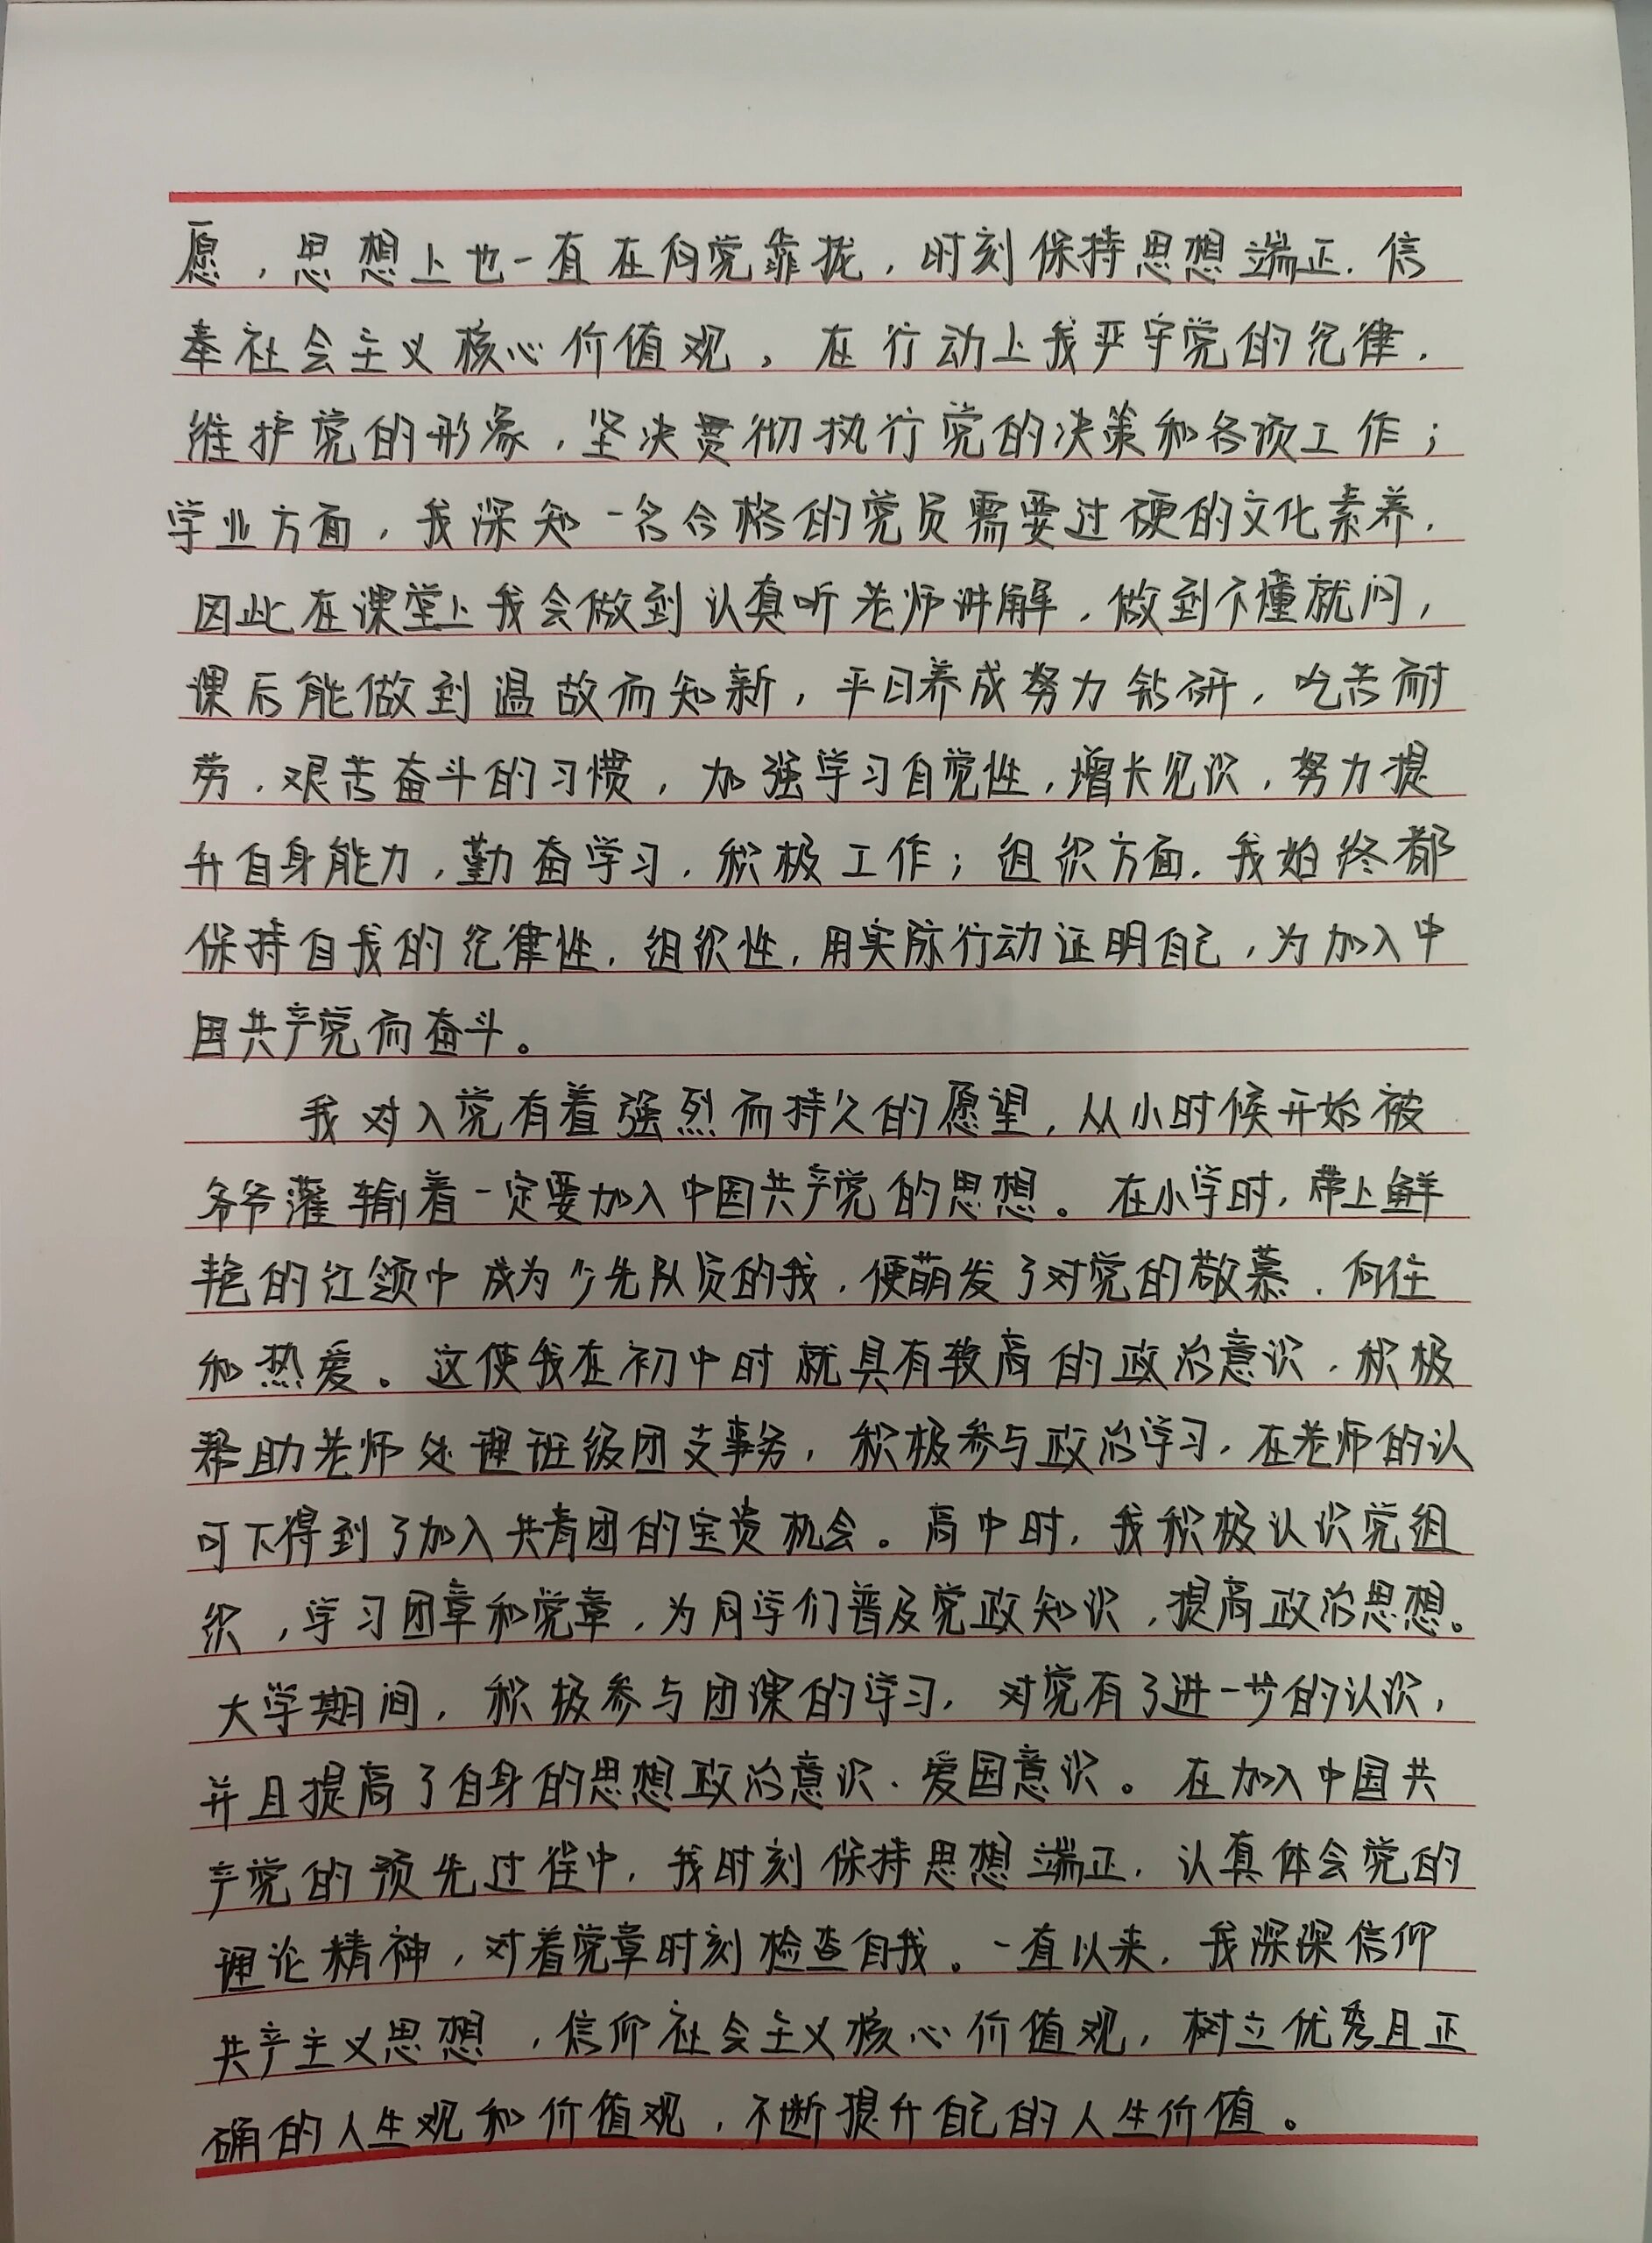 愿，思想上也一直在向党靠拢，时刻保持思想端正，信
奉社会主义核心价值观。在行动上我严守党的纪律，
维护党的形象，坚决贯彻执行党的决策和各项工作；
学业方面，我深知一名合格的党员需要过硬的文化素养，
因此在课堂上我会做到认真听老师讲解，做到不懂就问，
课后能做到温故而知新，平日养成努力钻研，吃苦耐
劳，艰苦奋斗的习惯，加强学习自觉性，增长见识，努力提
升自身能力，勤奋学习，积极工作；组织方面，我始终都
保持自我的纪律性，组织性，用实际行动证明自己，为加入中
国共产党而奋斗。
我对入党有着强烈而持久的愿望，从小时候开始被
爷爷灌输着一定要加入中国共产党的思想。在小学时，带上鲜
艳的红领巾成为少先队员的我，便萌发了对党的敬慕，向往
和热爱。这使我在初中时就具有较高的政治意识，积极
帮助老师处理班级团支事务，积极参与政治学习，在老师的认
可下得到了加入共青团的宝贵机会。高中时，我积极认识党组
织，学习团章和党章，为同学们普及党政知识，提高政治思想。
大学期间，积极参与团课的学习，对党有了进一步的认识，
并且提高了自身的思想政治意识、爱国意识。在加入中国共
产党的预先过程中，我时刻保持思想端正，认真体会党的
理论精神，对着党章时刻检查自我。一直以来，我深深信仰
共产主义思想，信仰社会主义核心价值观，树立优秀且正
确的人生观和价值观，不断提升自己的人生价值。